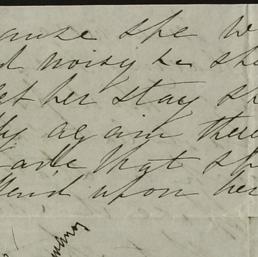 ause she w
d noisy & she
et her stay s
ly again there
that s
tend upon her